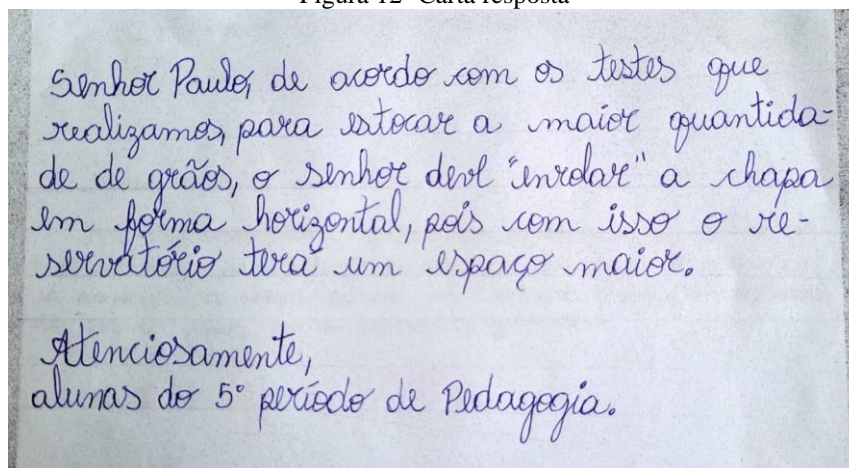 Figura 12- Carta resposta
Senhor Paulo, de acordo com os testes que
realizamos, para estocar a maior quantida-
de de grãos, o senhor deve "enrolar" a chapa
em forma horizontal, pois com isso o re-
servatório terá um espaço maior.
Atenciosamente,
alunas do 5° período de Pedagogia.